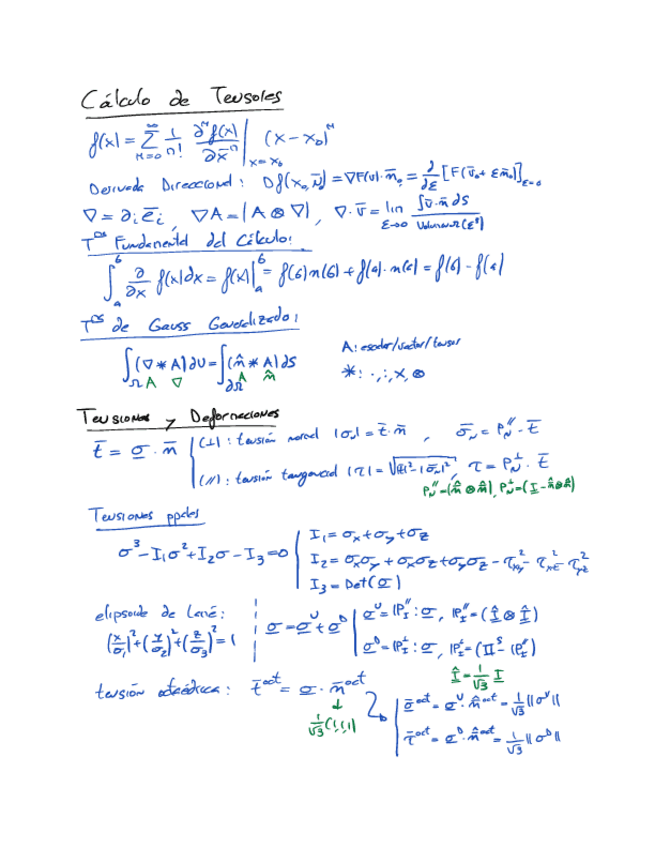 Cálculo de Tensores
f(x) = Σ_{n=0}^{∞} 1/n! ∂ⁿf(x)/∂xⁿ |_{x=x₀} (x-x₀)ⁿ
Derivada Direccional: Df(x₀, N̄) = ∇F(v)·n̄₀ = ∂/∂ε [F(v̄₀ + εn̄₀)]_{ε=0}
∇ = ∂ᵢēᵢ, ∇A = (A ⊗ ∇), ∇·v̄ = lim_{ε→0} ∫v̄·n̄ dS / Volumen(ε³)
T^{os} Fundamental del Cálculo:
∫_a^b ∂/∂x f(x)dx = f(x)|_a^b = f(b)n(b) + f(a)·n(a) = f(b) - f(a)
T^{os} de Gauss Generalizado:
∫_Ω (∇ * A)dv = ∫_{∂Ω} (n̂ * A)dS
A ∇ A n̂
A: escalar/vector/tensor
*: ·, :, ×, ⊗
Tensiones y Deformaciones
t̄ = σ · n̄
(⊥): tensión normal |σₙ| = t̄·n̄, σ̄_N = P_N^{//}·t̄
(//): tensión tangencial |τ| = √(|t̄|²-|σ̄ₙ|²), τ = P_N^⊥·t̄
P_N^{//} = (n̂ ⊗ n̂), P_N^⊥ = (I - n̂⊗n̂)
Tensiones ppales
σ³ - I₁σ² + I₂σ - I₃ = 0
I₁ = σx + σy + σz
I₂ = σxσy + σxσz + σyσz - τ²xy - τ²xz - τ²yz
I₃ = Det(σ)
elipsoide de Lamé:
(x/σ₁)² + (y/σ₂)² + (z/σ₃)² = 1
σ = σ^v + σ^D
σ^v = ℙ_I^{//} : σ, ℙ_I^{//} = (Î ⊗ Î)
σ^D = ℙ_I^⊥ : σ, ℙ_I^⊥ = (𝕀^S - ℙ_I^{//})
Î = 1/√3 I
tensión octaédrica: t̄^{oct} = σ · n̄^{oct}
1/√3 (1,1,1)
σ̄^{oct} = σ^v · n̂^{oct} = 1/√3 ||σ^v||
τ̄^{oct} = σ^D · n̂^{oct} = 1/√3 ||σ^D||